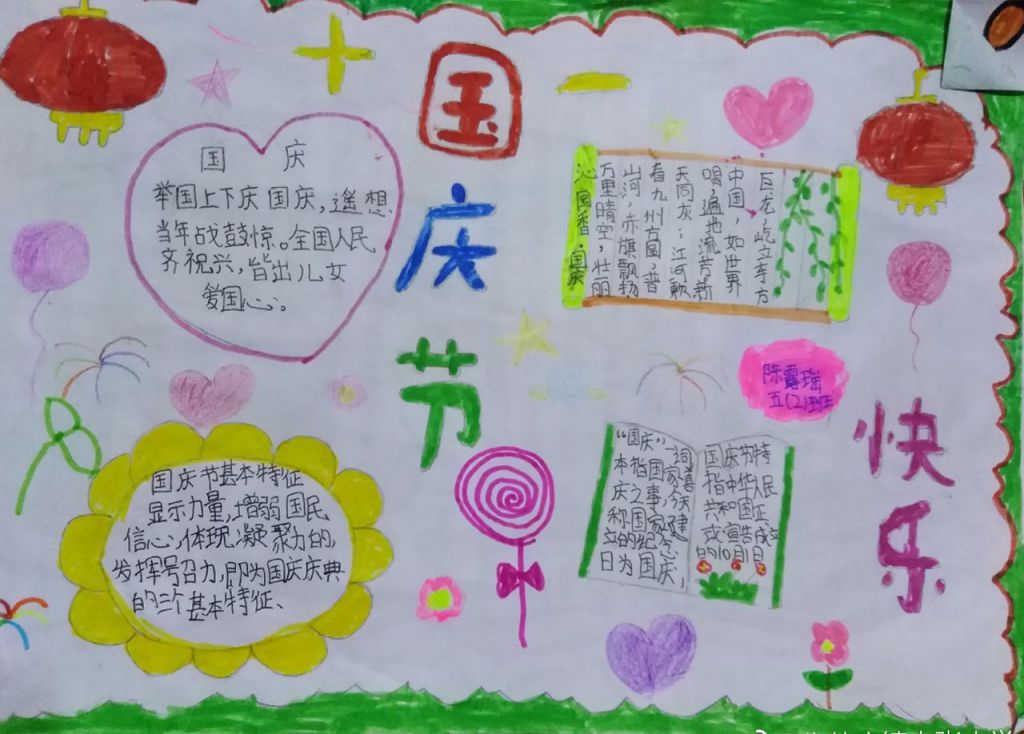 十一
国庆节
快乐
国 庆
举国上下庆国庆,遥想
当年战鼓惊。全国人民
齐祝兴,皆出儿女
爱国心。
沁国香,国庆
万里晴空,壮丽
山河,赤旗飘扬
看九州方圆,普
天同庆;江河歌
唱,遍地流芳,新
中国,如世界
巨龙屹立东方
陈露瑶
五(2)班
国庆节基本特征
显示力量,增强国民
信心,体现凝聚力的,
发挥号召力,即为国庆庆典
的三个基本特征、
“国庆”一词
本指国家喜
庆之事,今天
称国家建
立的纪念
日为国庆,
国庆节特
指中华人民
共和国正
式宣告成立
的10月1日